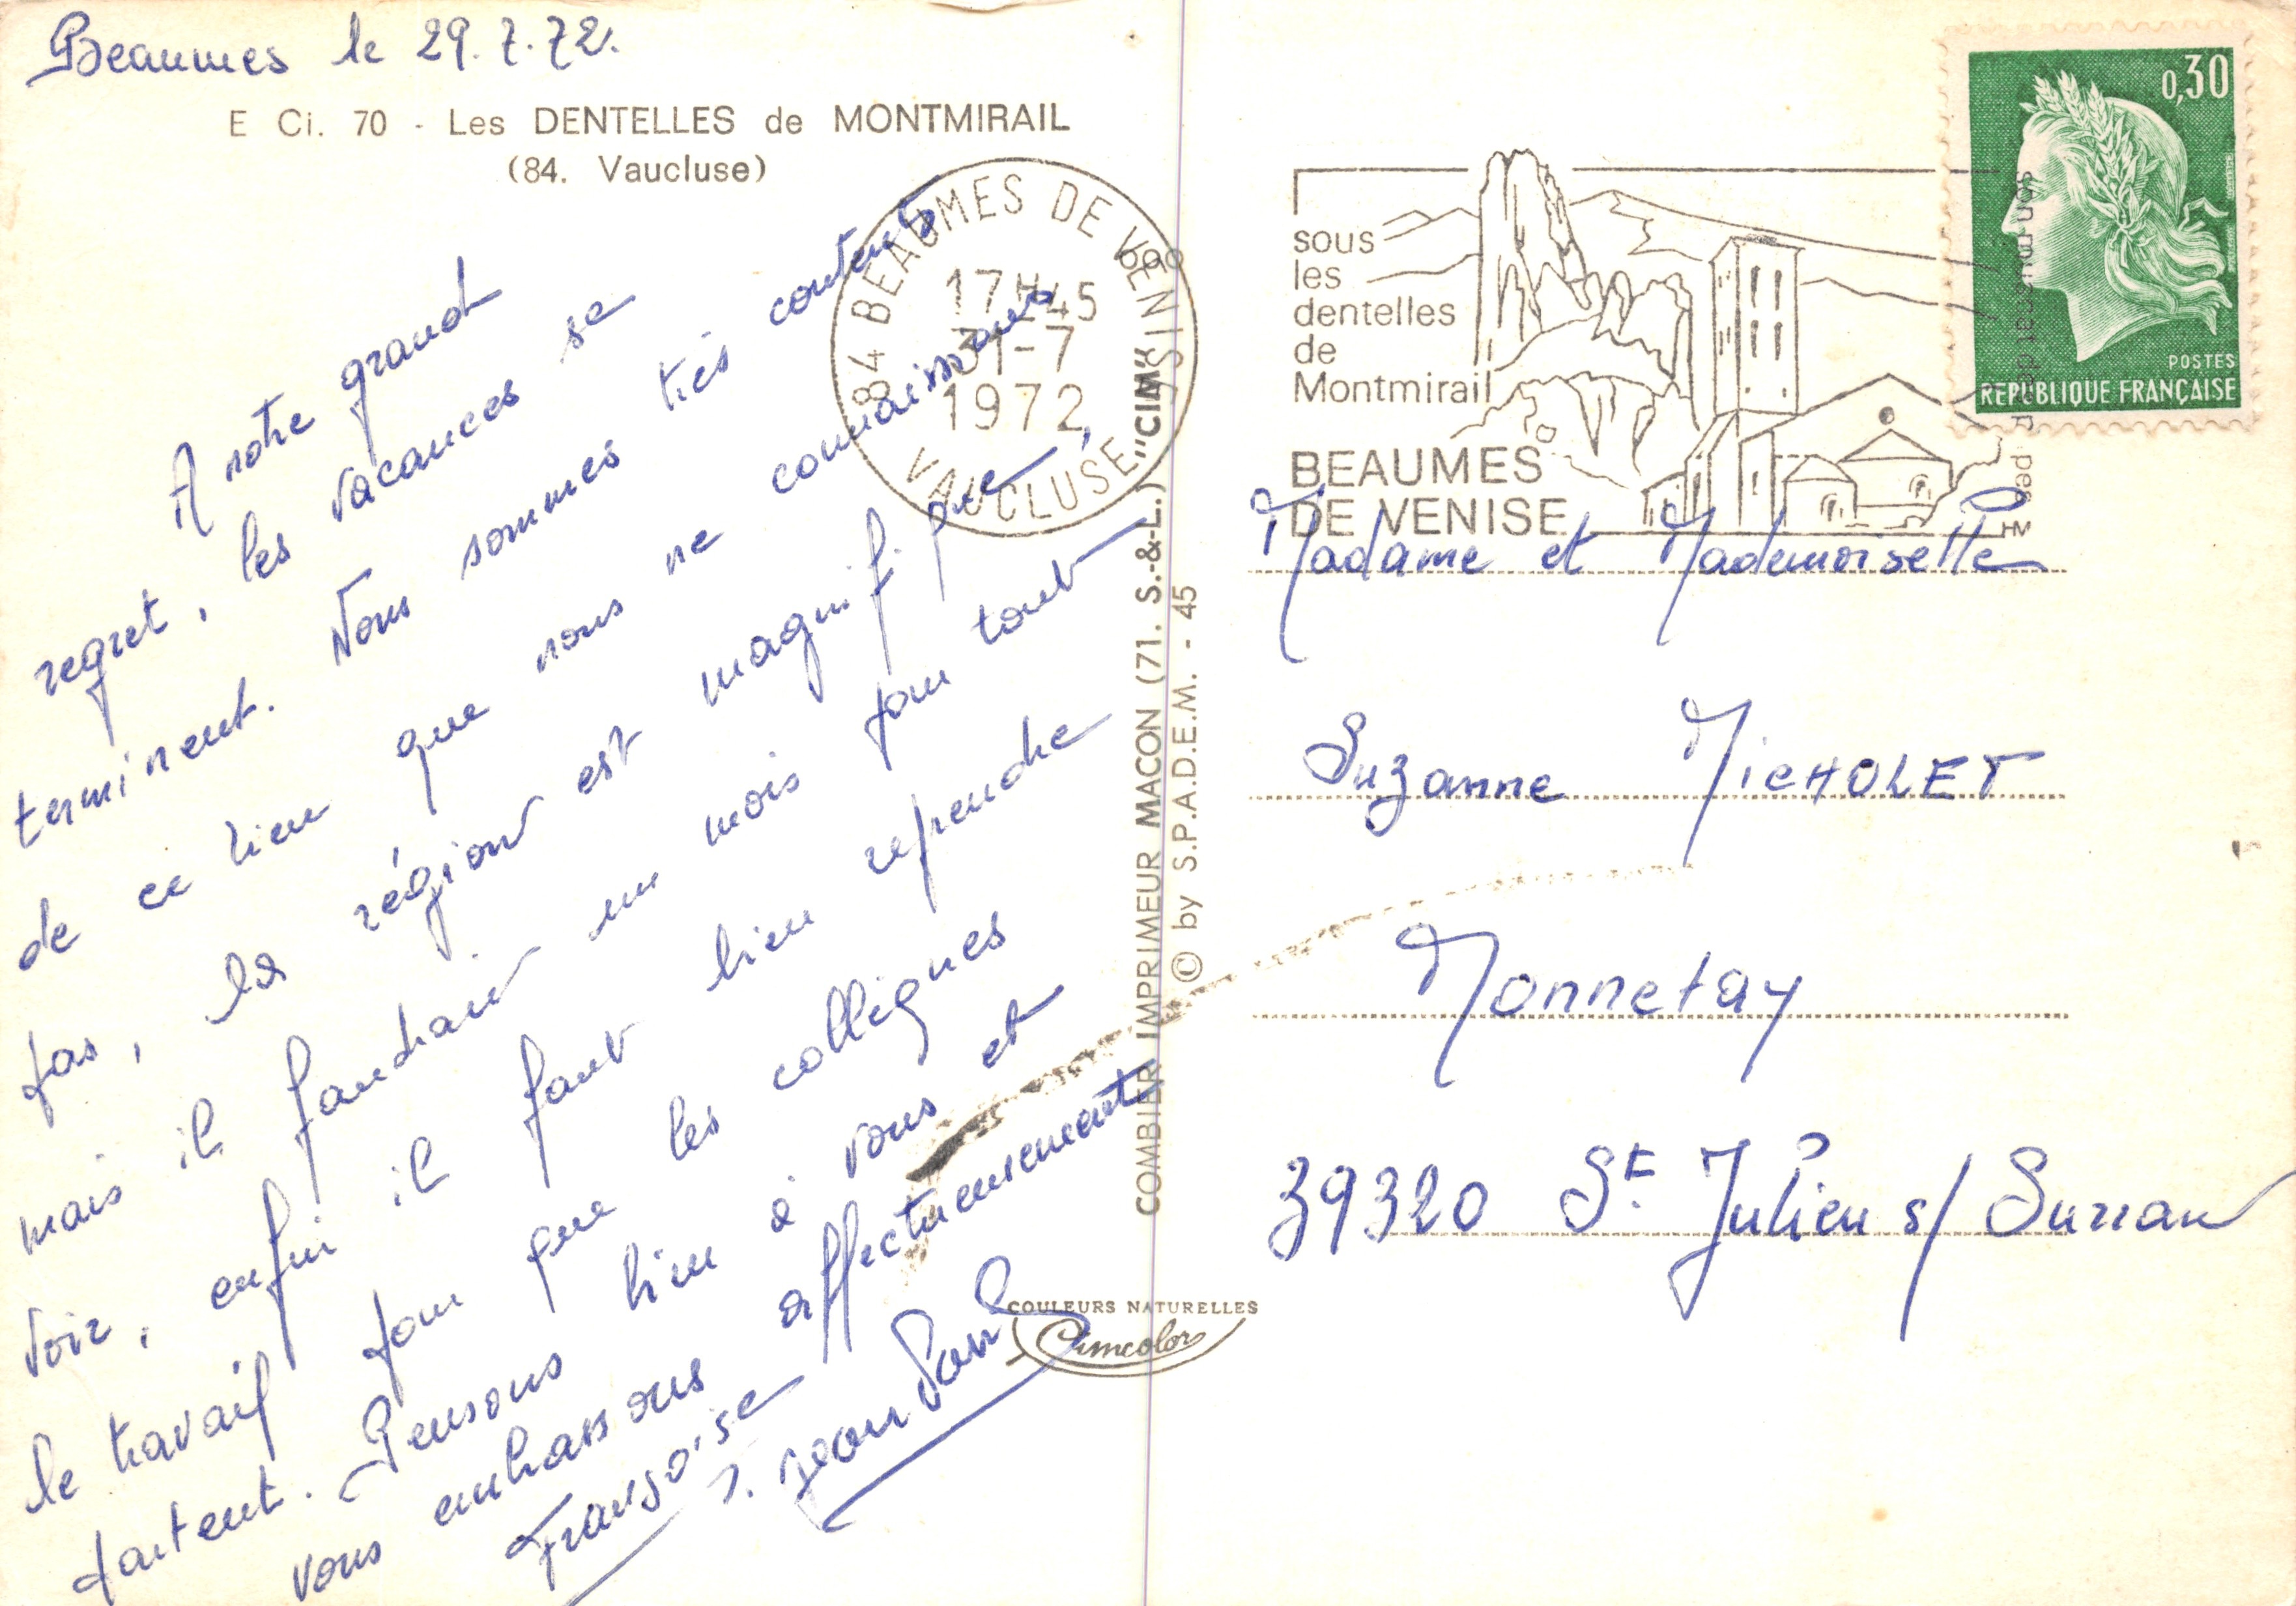 Beaumes le 29.7.72.
E Ci. 70 - Les DENTELLES de MONTMIRAIL
(84. Vaucluse)
A notre grand
regret, les vacances se
terminent. Nous sommes très contents
de ce lieu que nous ne connaissions
pas, la région est magnifique,
mais il faudrait un mois pour tout
voir, enfin il faut bien reprendre
le travail pour que les collègues
partent. Pensons bien à vous et
vous embrassons affectueusement
Françoise
J. Jean Paul
84 BEAUMES DE VENISE
17H45
31-7
1972
VAUCLUSE
COMBIER IMPRIMEUR MACON (71. S.-&-L.) "CIM"
© by S.P.A.D.E.M. - 45
COULEURS NATURELLES
Cimcolor
sous
les
dentelles
de
Montmirail
BEAUMES
DE VENISE
HM
0,30
POSTES
REPUBLIQUE FRANÇAISE
Madame et Mademoiselle
Suzanne MicHOLET
Monnetay
39320 St. Julien s/ Surran